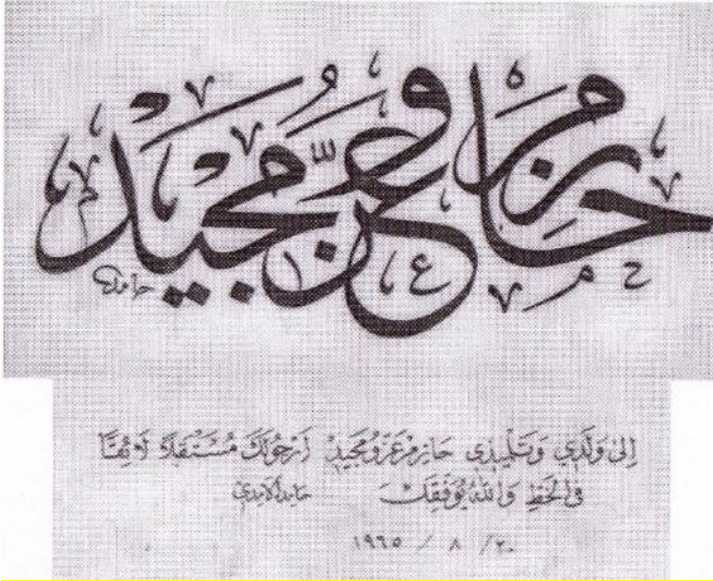 حازم عزو مجيد
حامد
إلى ولدي وتلميذي حازم عزو مجيد أرجو لك مستقبلاً لائقاً
في الخط والله يوفقك حامد الآمدي
٢٠ / ٨ / ١٩٦٥